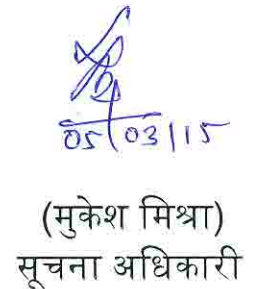 05/03/15
(मुकेश मिश्रा)
सूचना अधिकारी